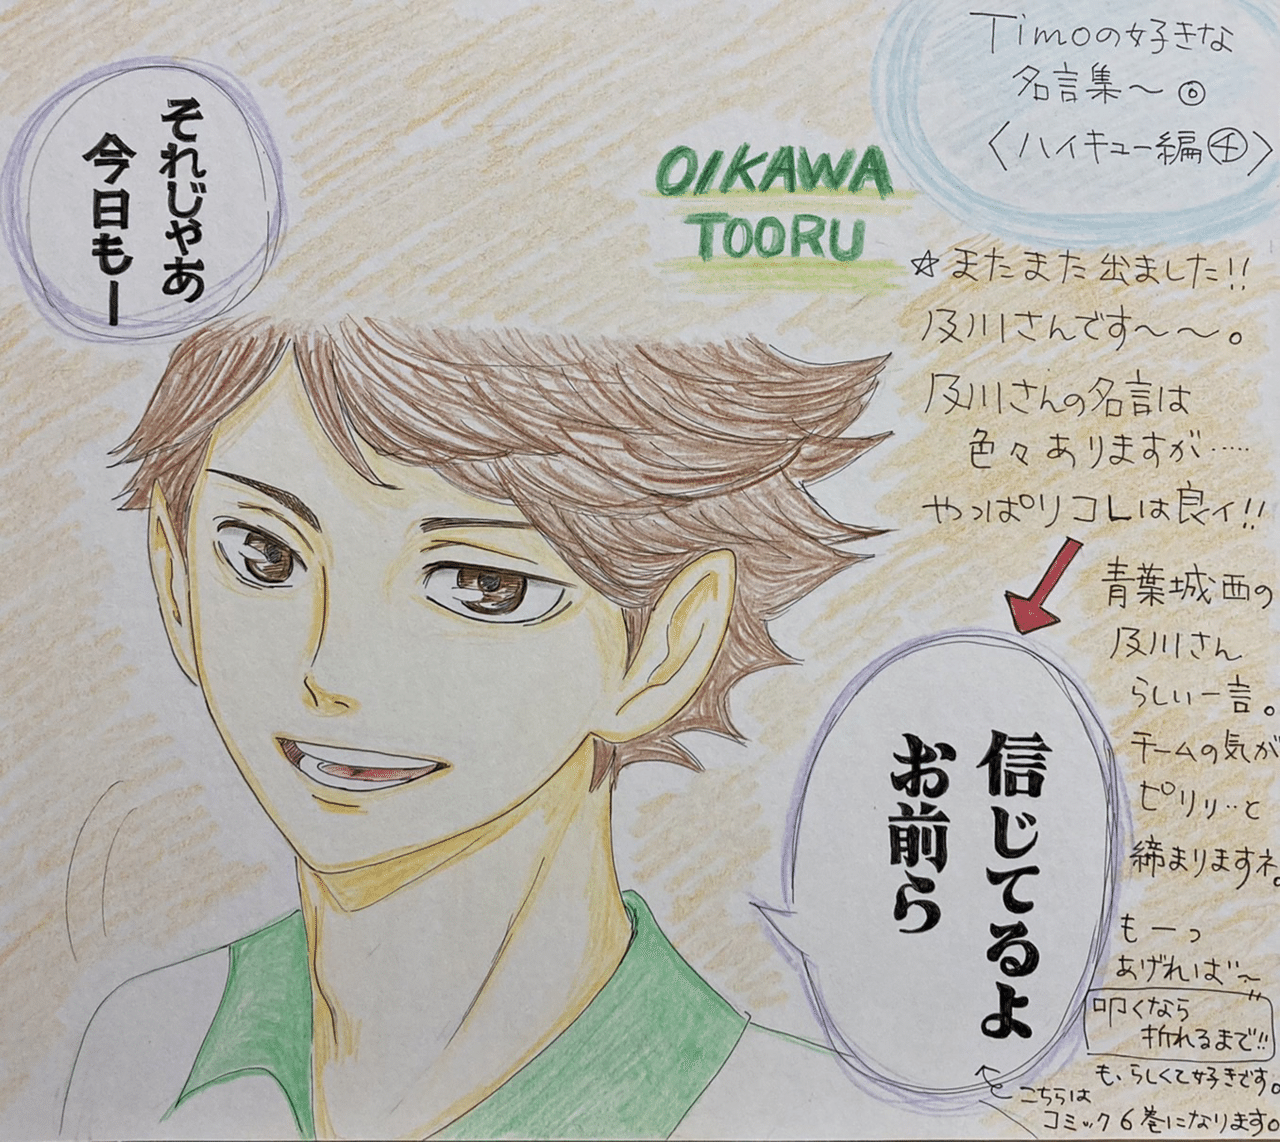 Timoの好きな
名言集〜◎
〈ハイキュー編㊉〉
それじゃあ
今日もー
OIKAWA
TOORU
☆またまた出ました!!
及川さんです〜〜。
及川さんの名言は
色々ありますが……
やっぱりコレは良イ!!
青葉城西の
及川さん
らしい一言。
チームの気が
ピリリ‥と
締まりますネ。
信じてるよ
お前ら
もーっ
あげれば〜
叩くなら
折れるまで!!
も、らしくて好きです。
こちらは
コミック6巻になります。